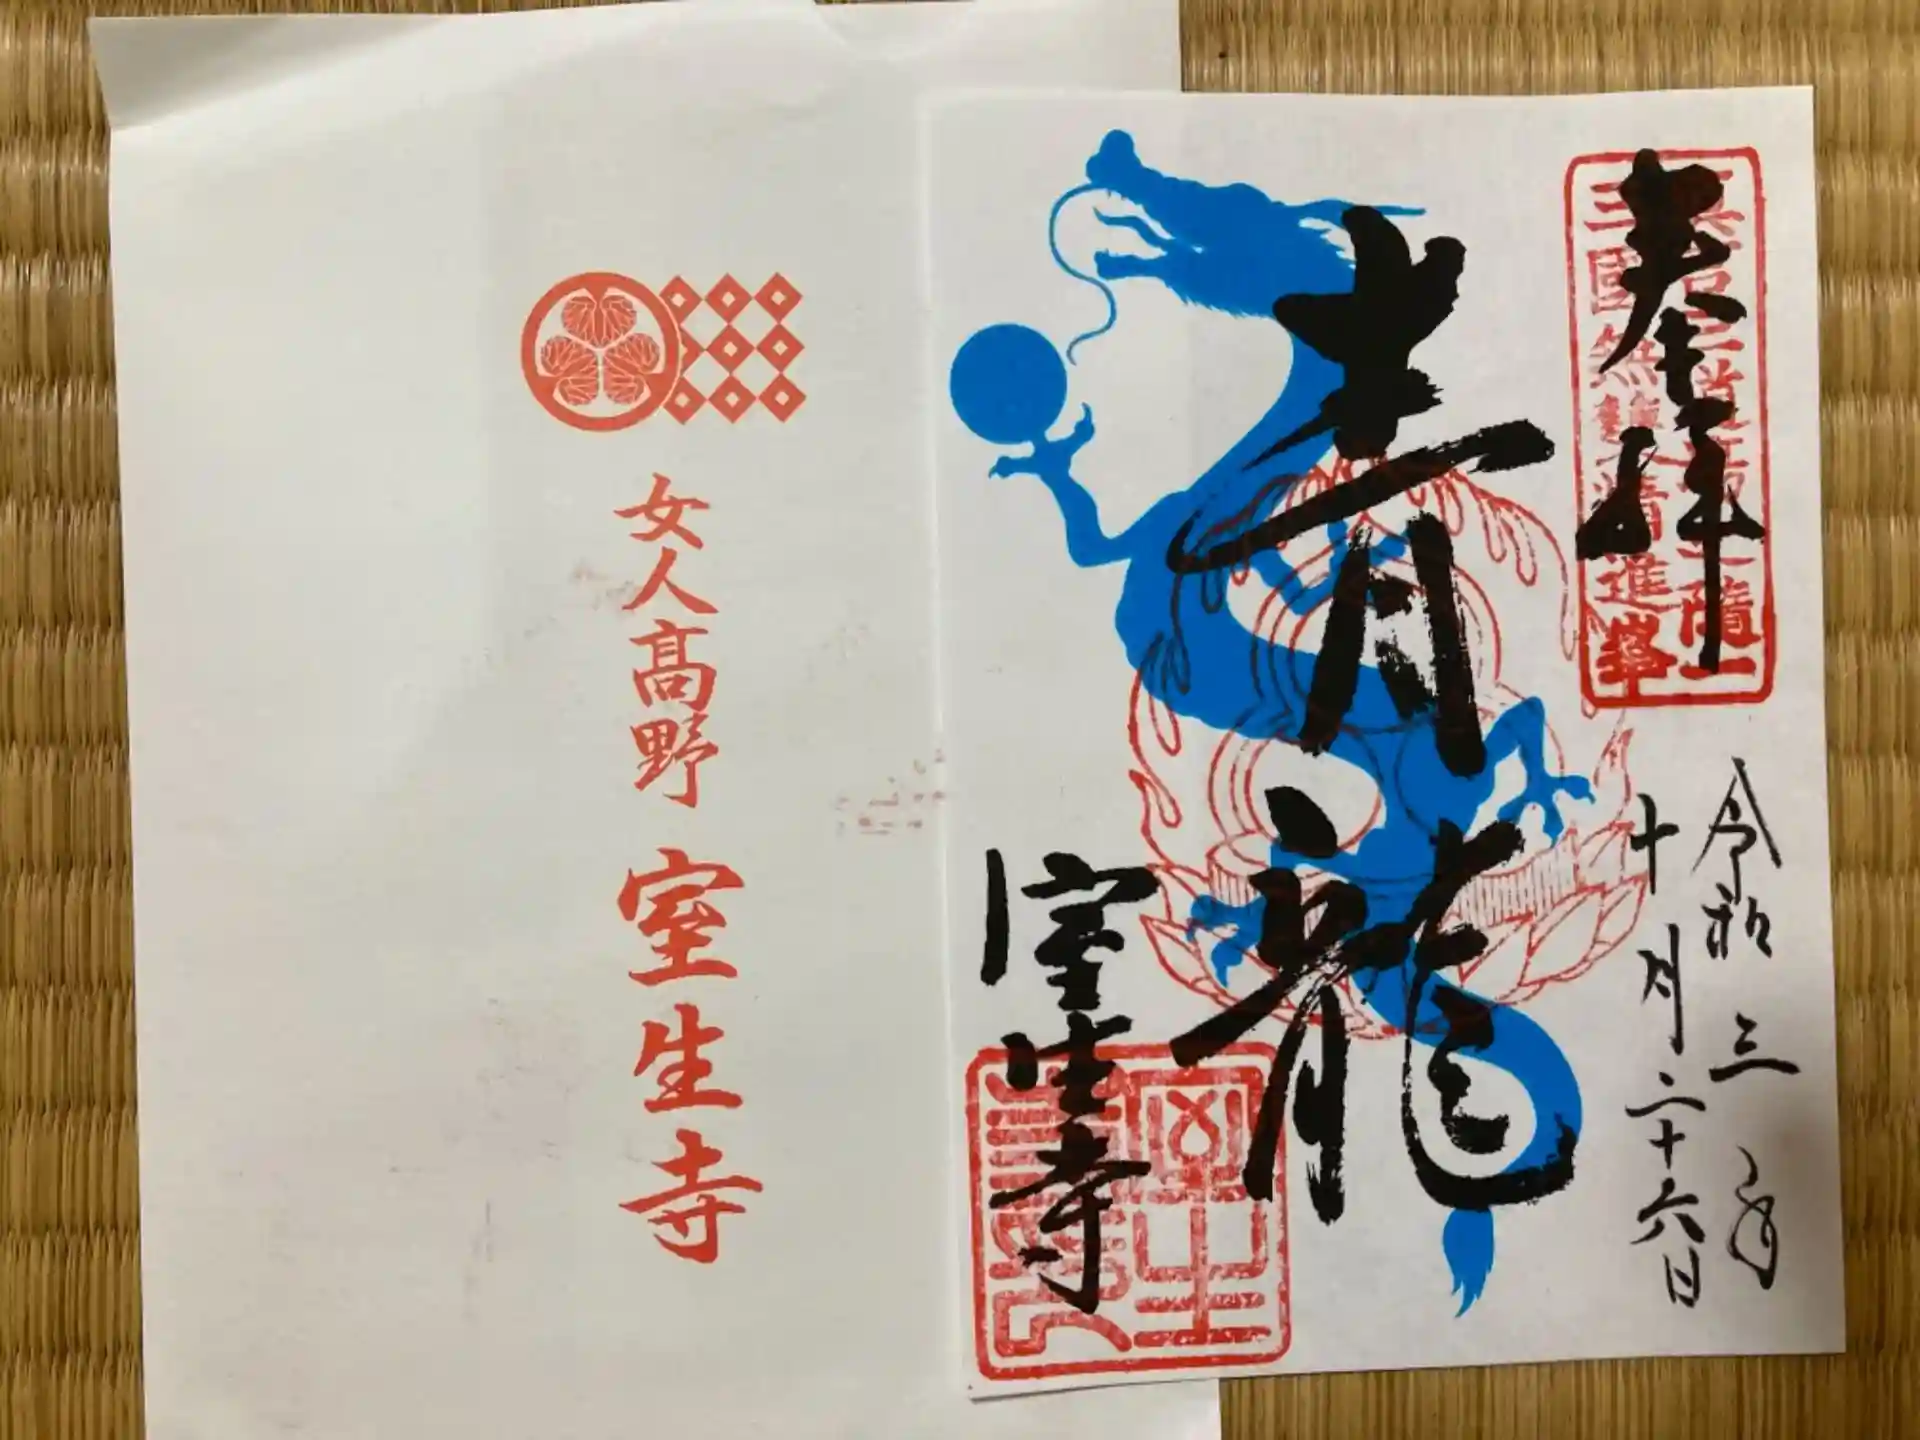 女人高野 室生寺
奉拝
令和三年
十月二十六日
青龍
室生寺